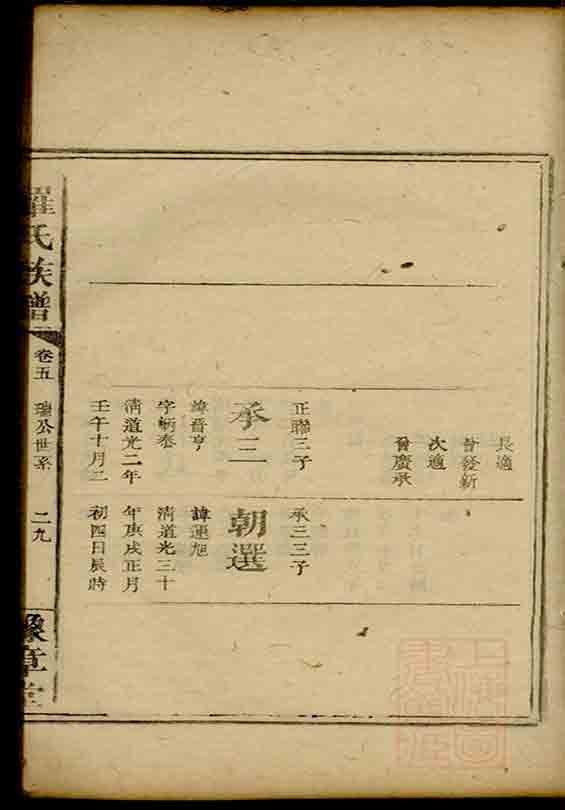 長適
曾發新
次適
曾慶承
正聯三子
承三
諱晋亨
字炳泰
清道光二年
壬午十月二
承三三子
朝選
諱運旭
清道光三十
年庚戌正月
初四日辰時
羅氏族譜
卷五
瑞公世系
二九
豫章堂